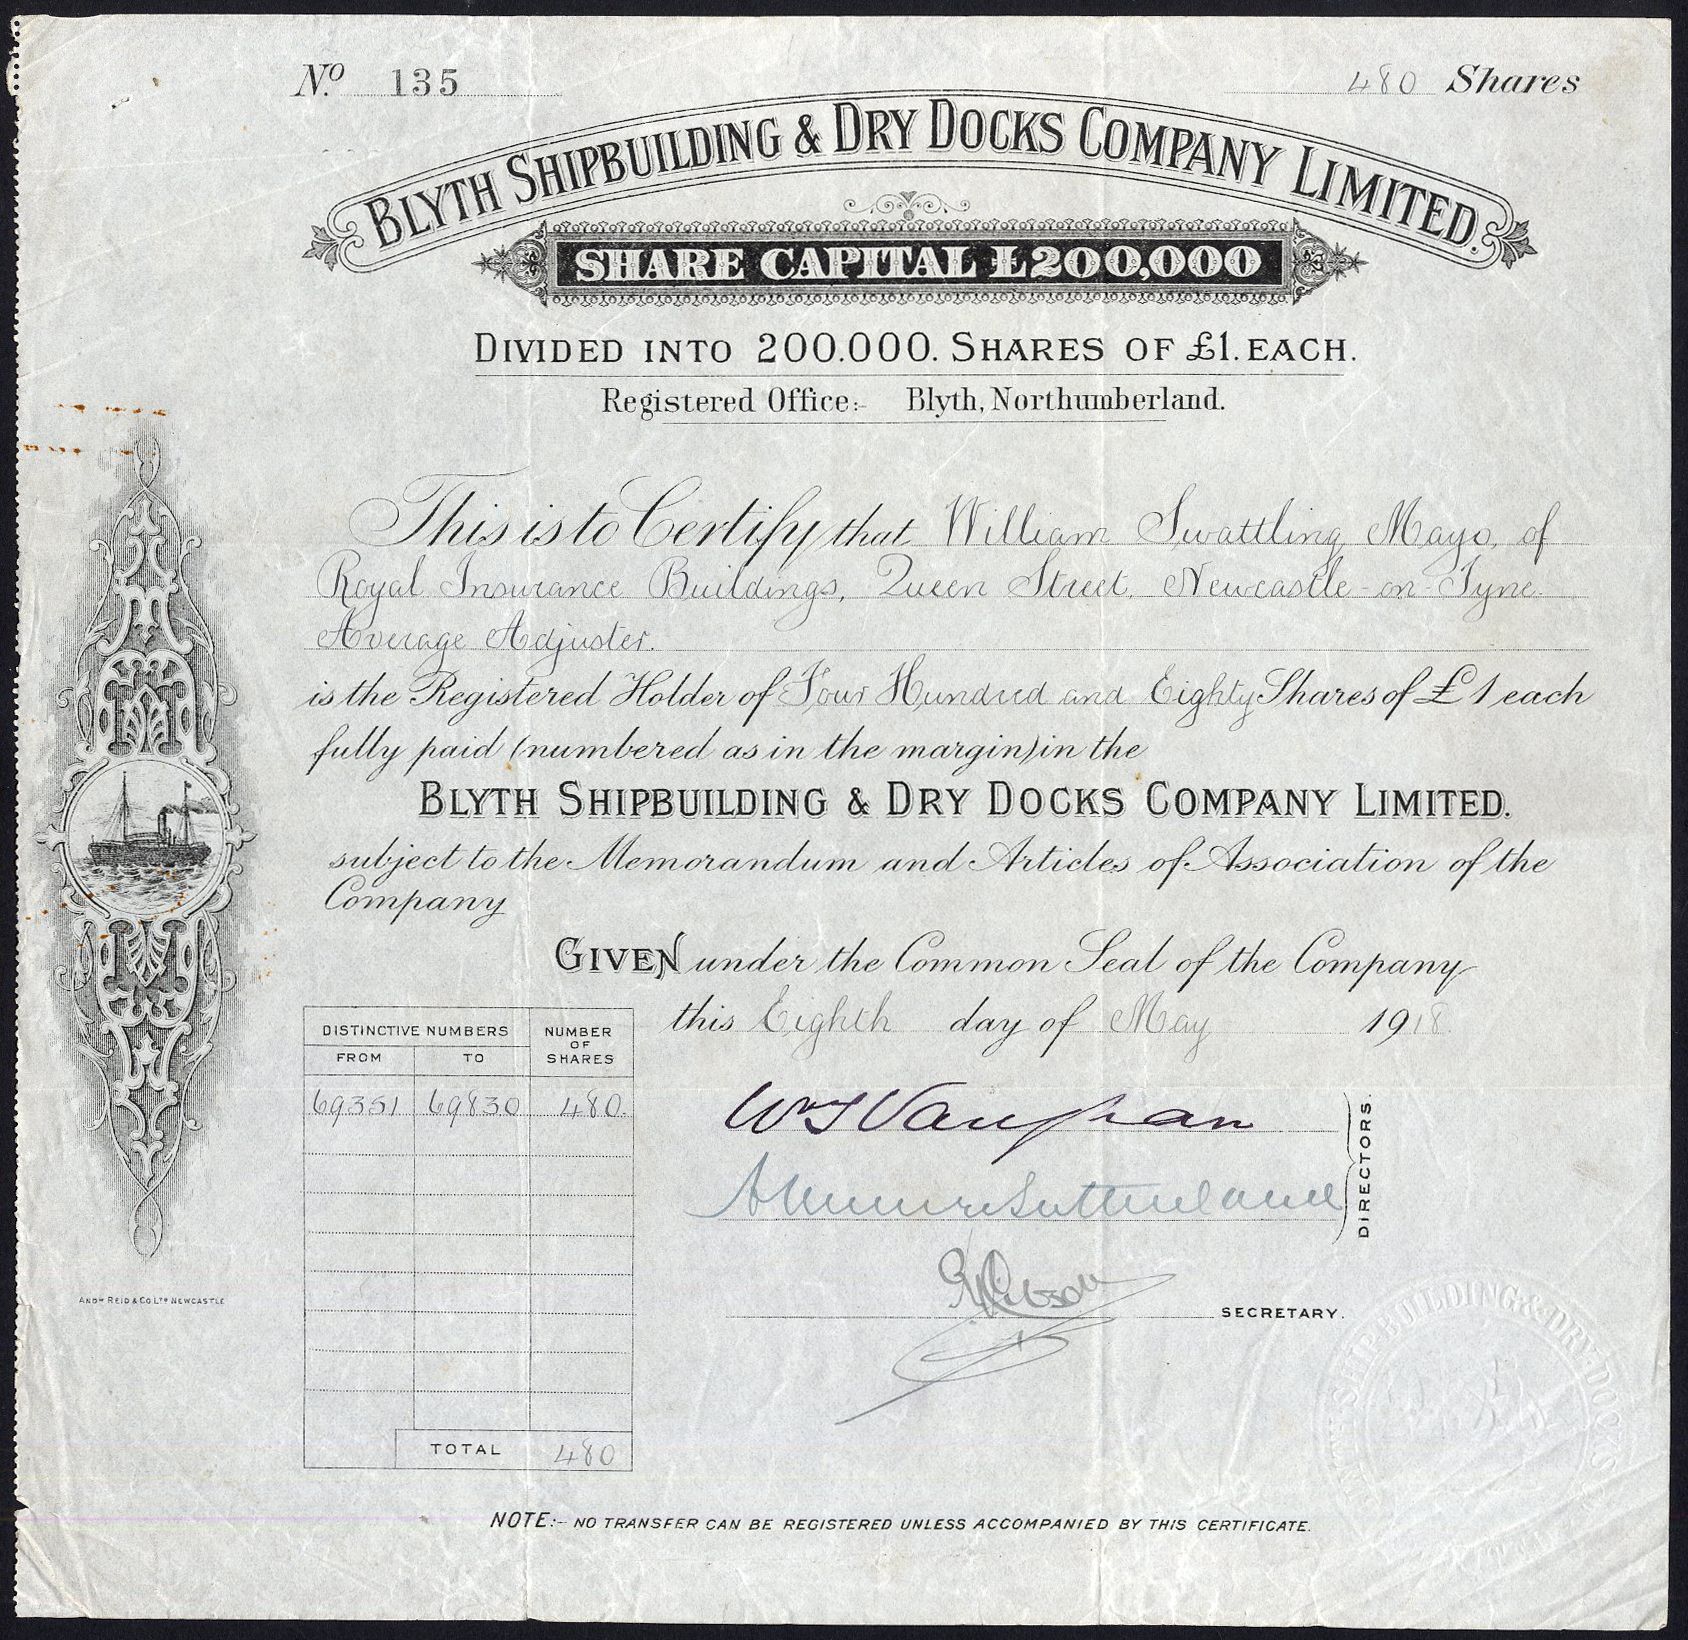 No. 135
480 Shares
BLYTH SHIPBUILDING & DRY DOCKS COMPANY LIMITED.
SHARE CAPITAL £200,000
DIVIDED INTO 200.000. SHARES OF £1. EACH.
Registered Office:- Blyth, Northumberland.
This is to Certify that William Swattling Mayo, of
Royal Insurance Buildings, Queen Street, Newcastle-on-Tyne.
Average Adjuster.
is the Registered Holder of Four Hundred and Eighty Shares of £1 each
fully paid (numbered as in the margin) in the
BLYTH SHIPBUILDING & DRY DOCKS COMPANY LIMITED.
subject to the Memorandum and Articles of Association of the
Company
GIVEN under the Common Seal of the Company
this Eighth day of May 1918
DISTINCTIVE NUMBERS
NUMBER OF SHARES
FROM TO
69351 69830 480.
TOTAL 480
Wm S Vaughan
Sutherland
DIRECTORS.
Gibson
SECRETARY.
ANDw REID & Co LTD NEWCASTLE
SHIPBUILDING & DRY DOCKS
NOTE:- NO TRANSFER CAN BE REGISTERED UNLESS ACCOMPANIED BY THIS CERTIFICATE.